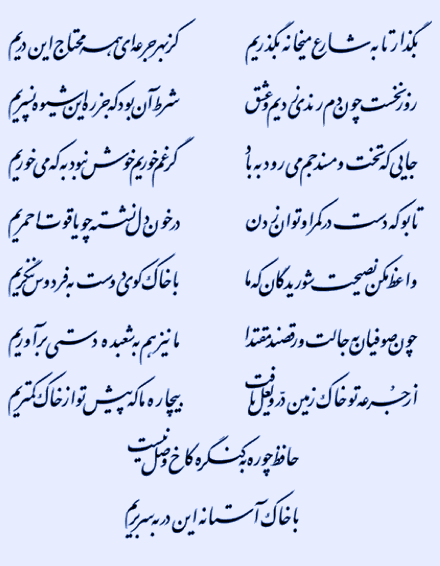 بگذار تا به شارع میخانه بگذریم کز بهر جرعه‌ای همه محتاج این دریم
روز نخست چون دم رندی زدیم و عشق شرط آن بود که جز ره این شیوه نسپریم
جایی که تخت و مسند جم می‌رود به باد گر غم خوریم خوش نبود به که می‌خوریم
تا بو که دست در کمر او توان زدن در خون دل نشسته چو یاقوت احمریم
واعظ مکن نصیحت شوریدگان که ما با خاک کوی دوست به فردوس ننگریم
چون صوفیان به حالت و رقصند مقتدا ما نیز هم به شعبده دستی برآوریم
از جرعه تو خاک زمین در و لعل یافت بیچاره ما که پیش تو از خاک کمتریم
حافظ چو ره به کنگره کاخ وصل نیست
با خاک آستانه این در به سر بریم